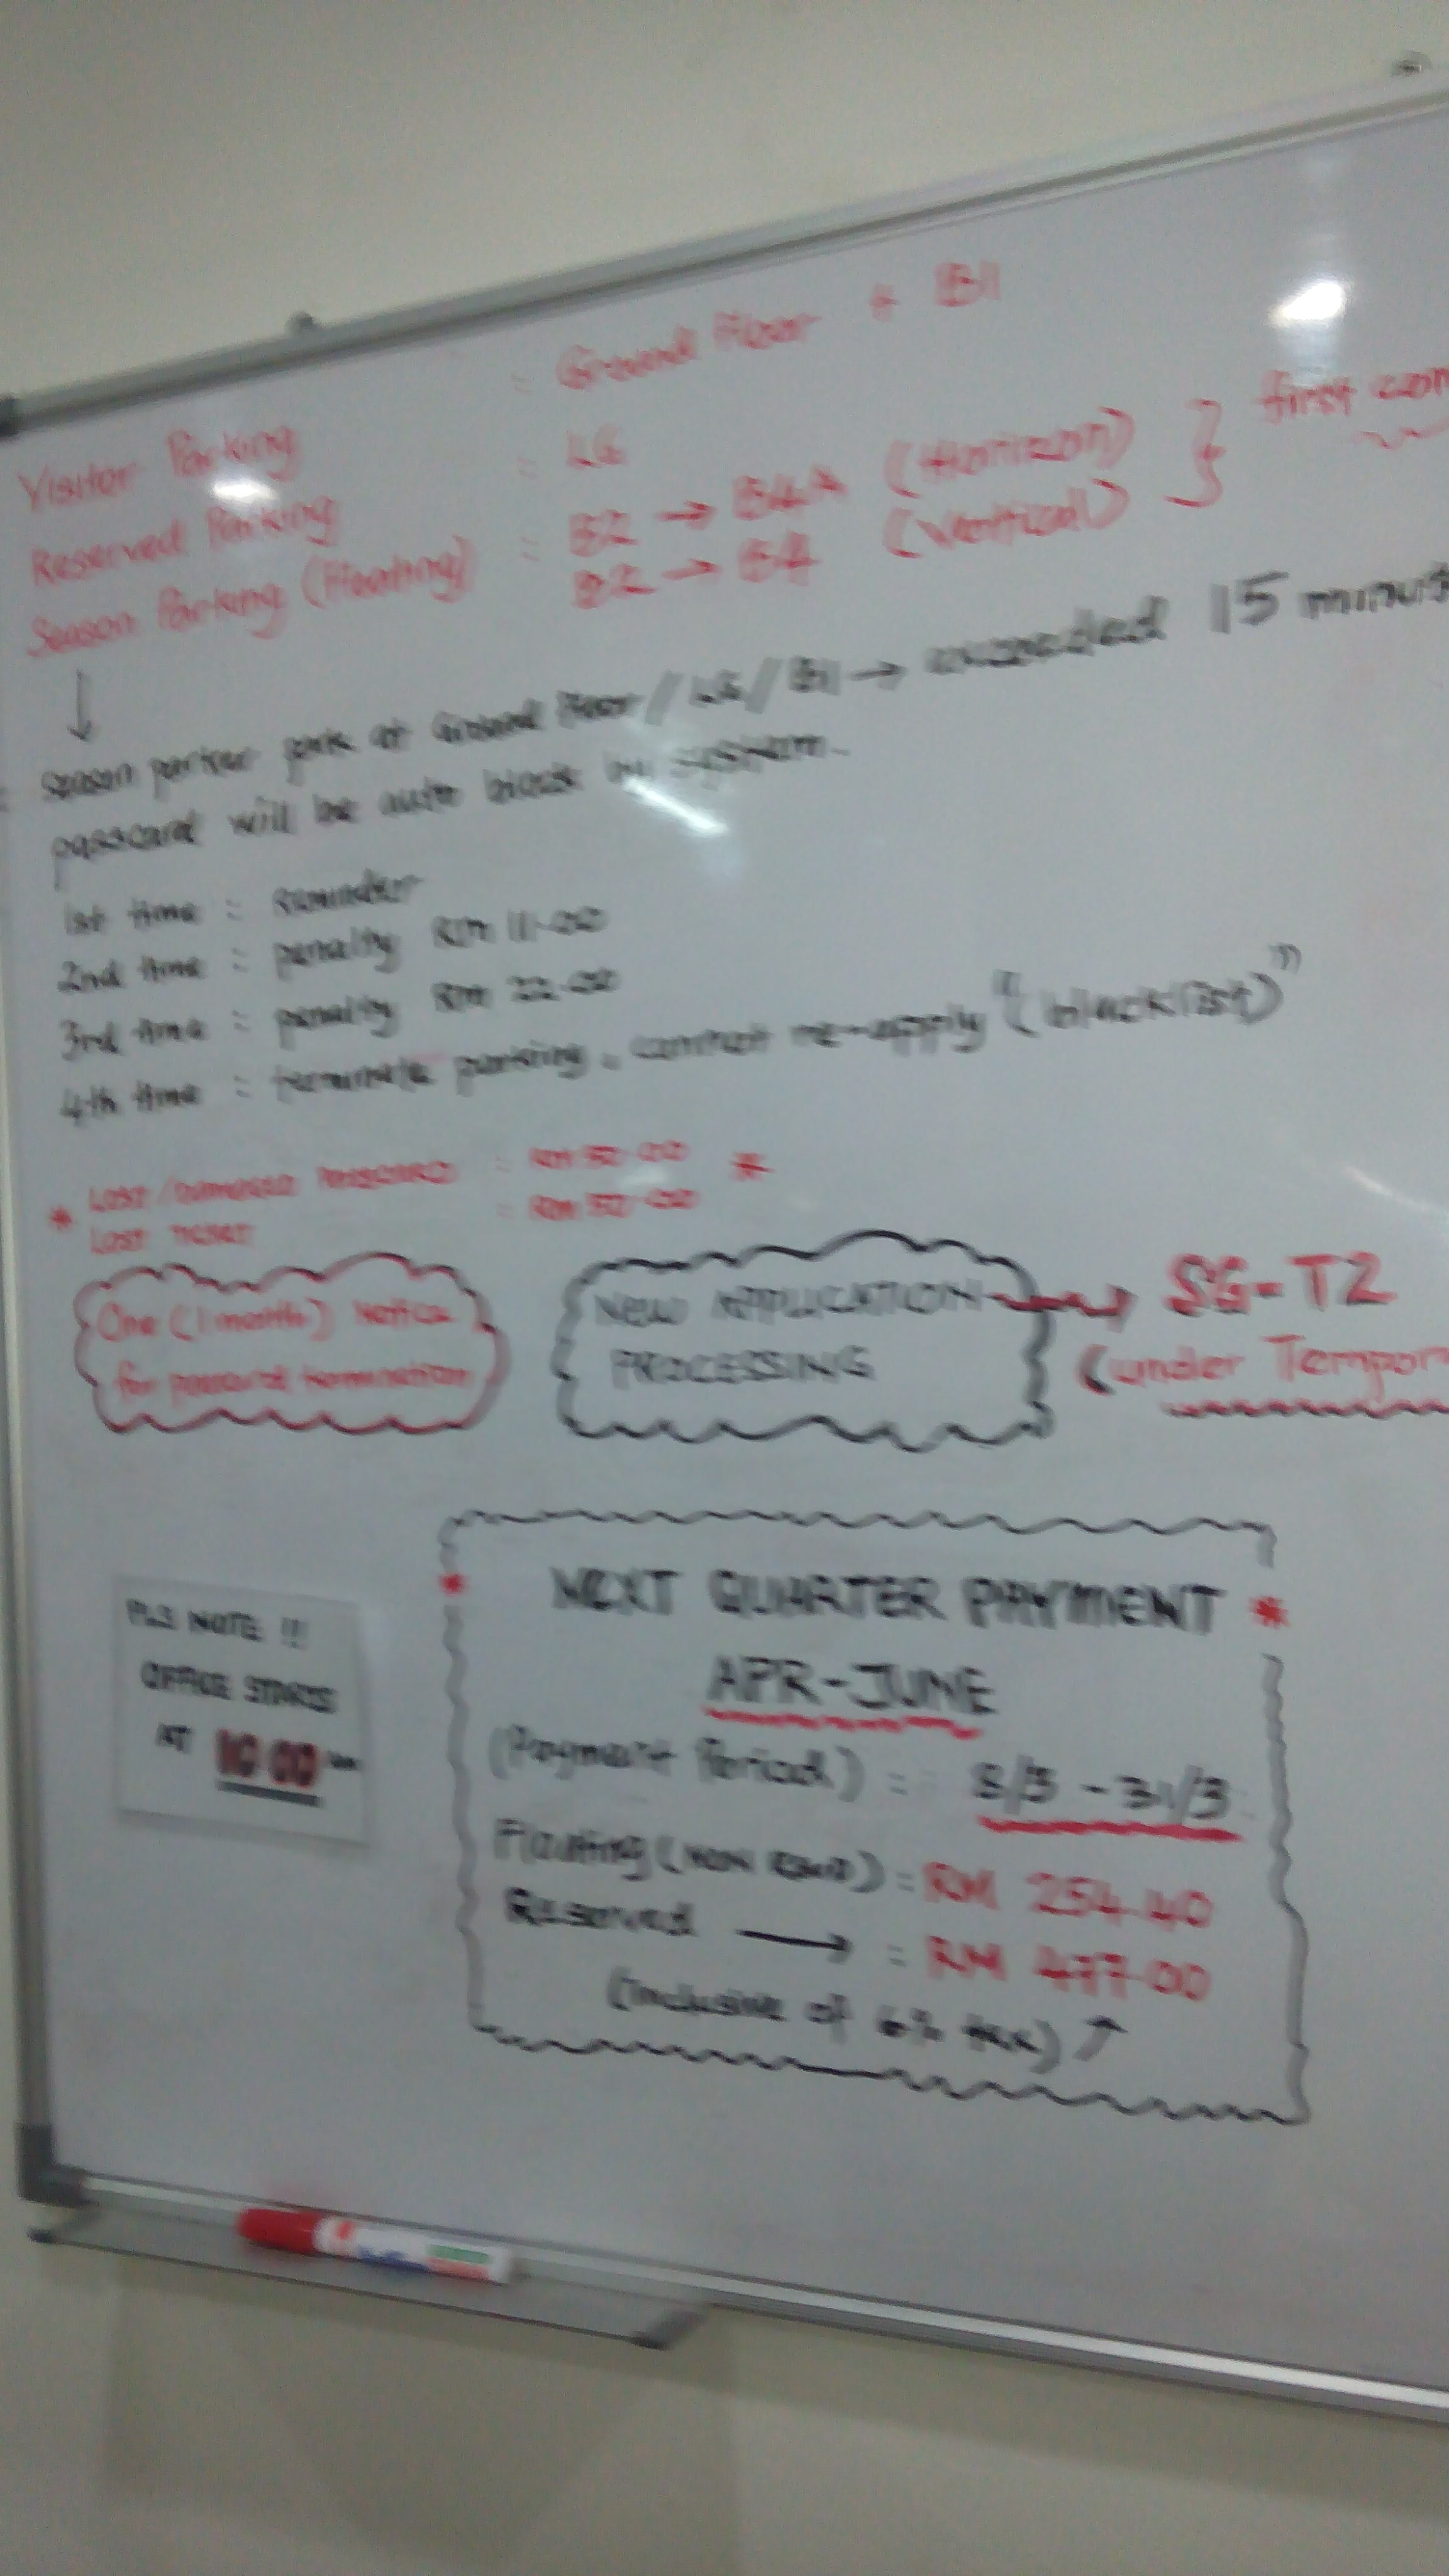 Visitor Parking : Ground Floor + B1
Reserved Parking : LG
Season Parking (Floating) : B2 → B4A (Horizon) } first com
B2 → B4 (Vertical)
↓
Season parker park at Ground Floor / LG / B1 → exceeded 15 minut
passcard will be auto block by system.
1st time : Reminder
2nd time : penalty RM 11.00
3rd time : penalty RM 22.00
4th time : terminate parking, cannot re-apply "(blacklist)"
* Lost / Damaged Passcard : RM 50.00 *
Lost Ticket : RM 50.00
One (1 month) Notice
for passcard termination
NEW APPLICATION → SG-T2
PROCESSING (under Tempor
PLS NOTE !!
OFFICE STARTS
AT 10.00
* NEXT QUARTER PAYMENT *
APR-JUNE
(Payment Period) : - 31/3
Floating (NON) : RM 254.40
Reserved → : RM 477.00
(Inclusive of 6% tax) ↑